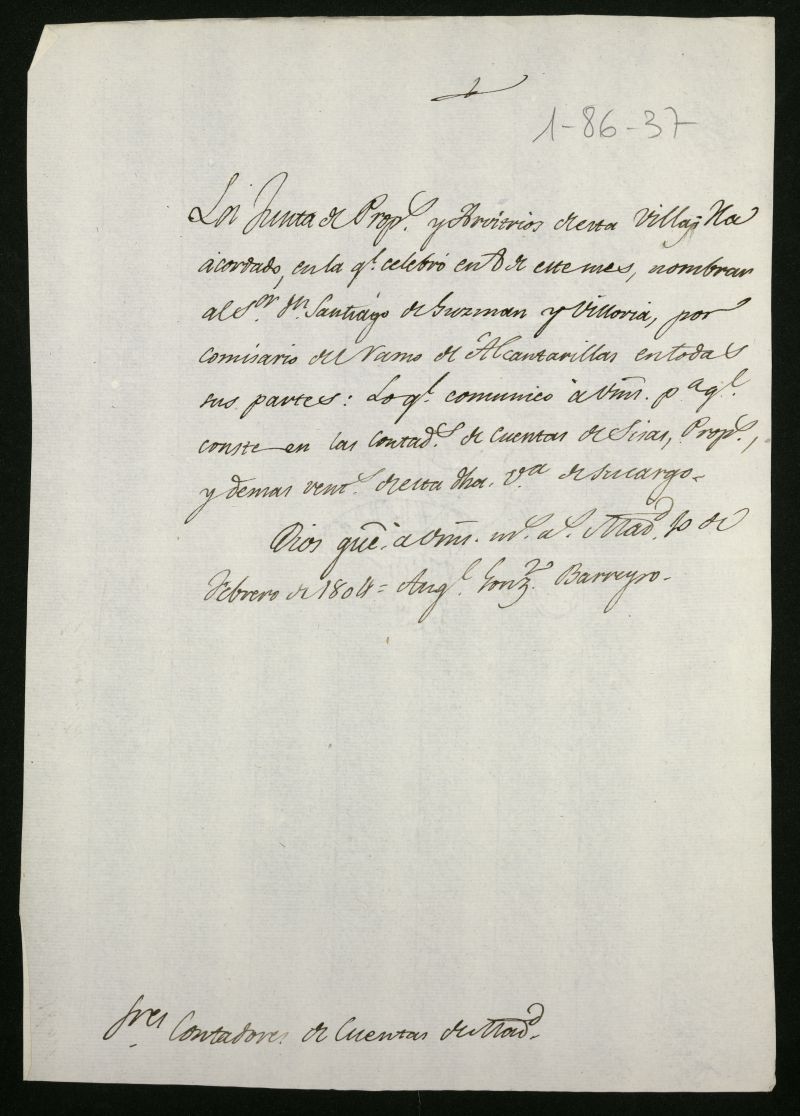 1-86-37
La Junta de Prop.s y Arvitrios de esta Villa, Ha
acordado, en la q.e celebró en 8 de este mes, nombrar
al S.or Dn Santiago de Guzman y Villoria, por
Comisario del Ramo de Alcantarillas en todas
sus partes: Lo q.e comunico à Vms. p.a q.e
conste en las Contad.s de Cuentas de Sisas, Prop.s,
y demas rent.s de esta dha. V.a de su cargo.
Dios gue. a Vms. m.s a.s Mad.d 10 de
Febrero de 1804 = Ang.l Gonz.z Barreyro.
Sres Contadores de Cuentas de Mad.d